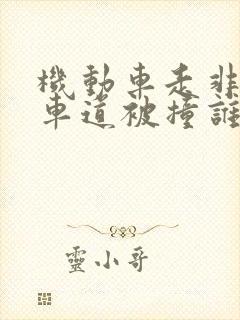 機動車走非
車道被撞誰
靈小哥